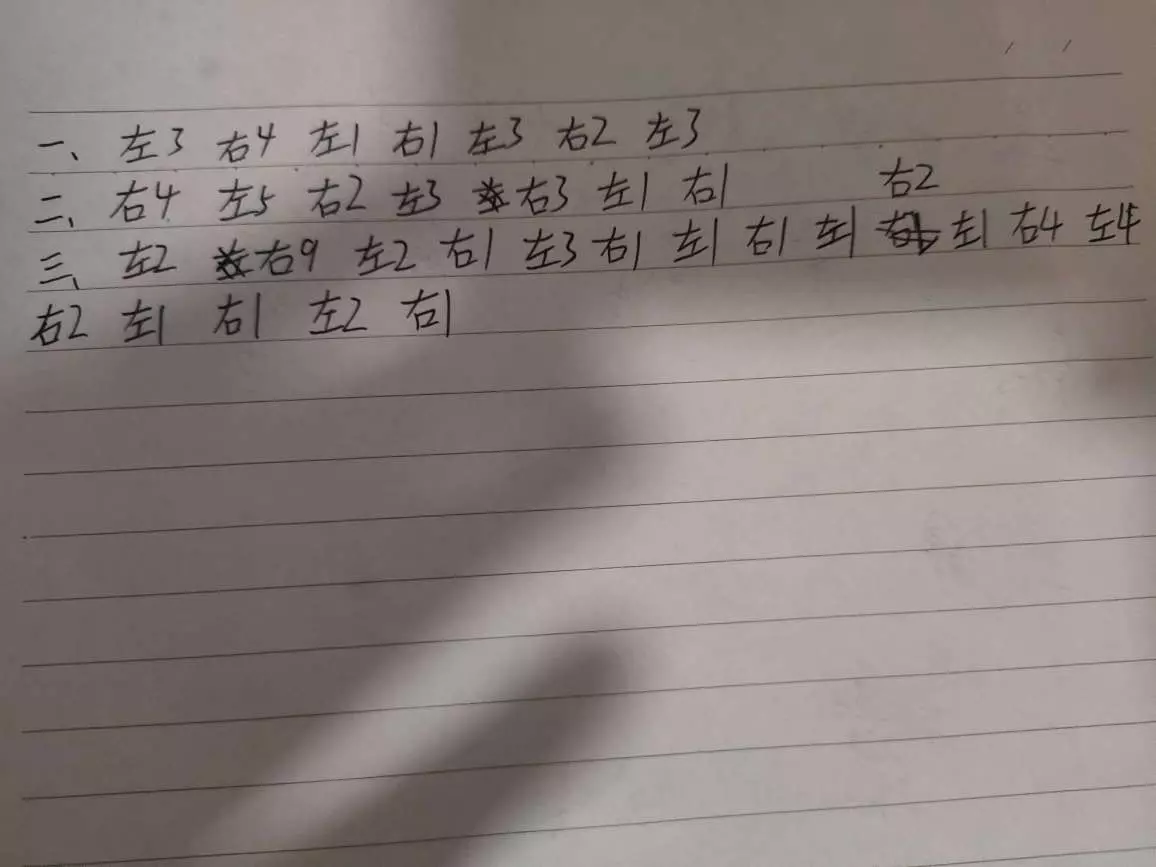 一、左3 右4 左1 右1 左3 右2 左3
二、右4 左5 右2 左3 右3 左1 右1
右2
三、左2 右9 左2 右1 左3 右1 左1 右1 左1 左1 右4 左4
右2 左1 右1 左2 右1